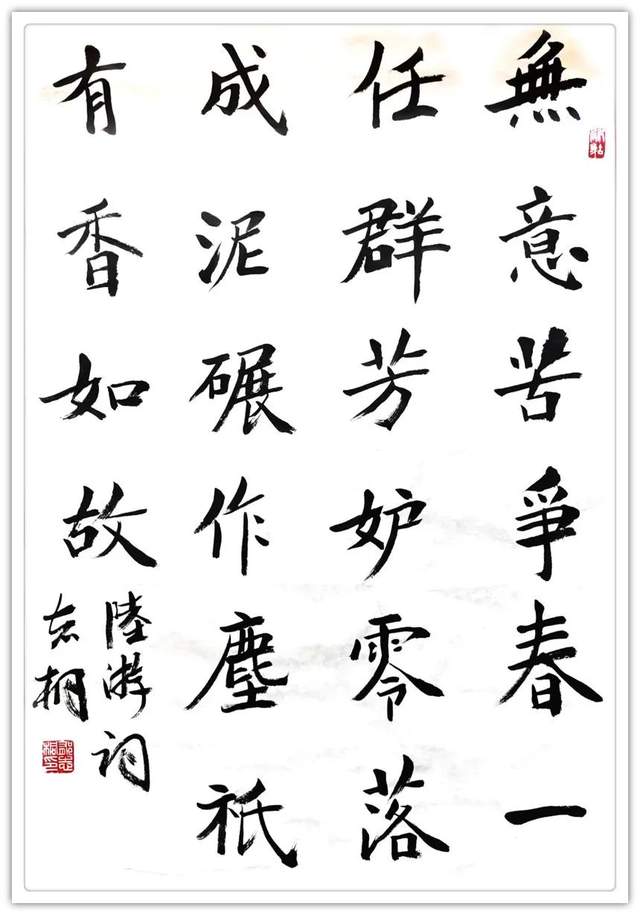 無意苦爭春一
任群芳妒零落
成泥碾作塵祇
有香如故
陸游詞
志桐